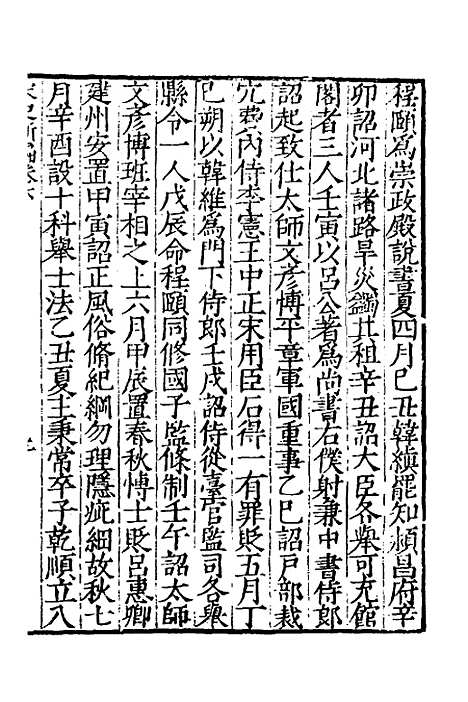 程頤爲崇政殿說書夏四月己丑韓縝罷知潁昌府辛
卯詔河北諸路旱災蠲其租辛丑詔大臣各舉可充館
閣者三人壬寅以呂公著爲尚書右僕射兼中書侍郎
詔起致仕太師文彥博平章軍國重事乙巳詔戸部裁
冗費內侍李憲王中正宋用臣石得一有罪貶五月丁
巳朔以韓維爲門下侍郎壬戌詔侍從臺官監司各舉
縣令一人戊辰命程頤同修國子監條制壬午詔太師
文彥博班宰相之上六月甲辰置春秋博士貶呂惠卿
建州安置甲寅詔正風俗脩紀綱勿理隱疵細故秋七
月辛酉設十科舉士法乙丑夏主秉常卒子乾順立八